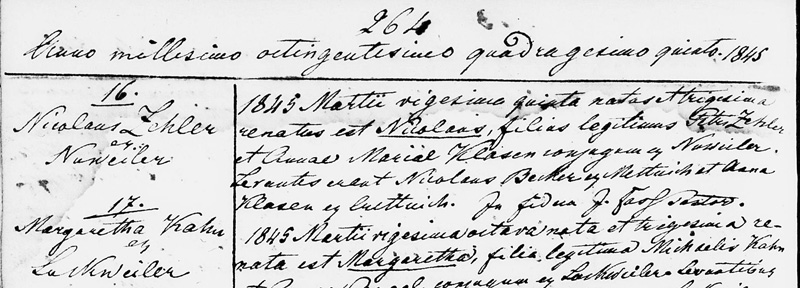 264
Anno millesimo octingentesimo quadragesimo quinto. 1845
16.
Nicolaus Zehler
ex
Nuweiler
1845 Martii vigesima quinta natus et trigesima
renatus est Nicolaus, filius legitimus Petri Zehler
et Annae Mariae Klasen conjugum ex Nuweiler.
Levantes erant Nicolaus Becker ex Mettnich et Anna
Klasen ex In fidem J. Pastor.
17.
Margaretha Kahn
ex
Lockweiler
1845 Martii vigesima octava nata et trigesima re-
nata est Margaretha, filia legitima Michaelis Kahn
et conjugum ex Lockweiler. Levantibus